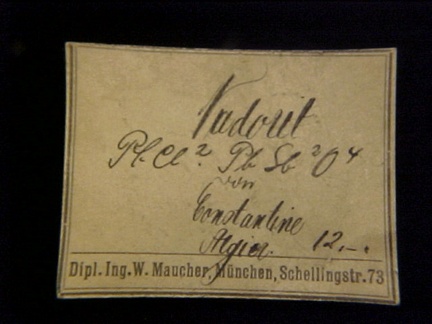 Nadorit
Pb. Cl². Pb Sb²O⁴
von
Constantine
Algier. 12,–.
Dipl. Ing. W. Maucher, München, Schellingstr. 73